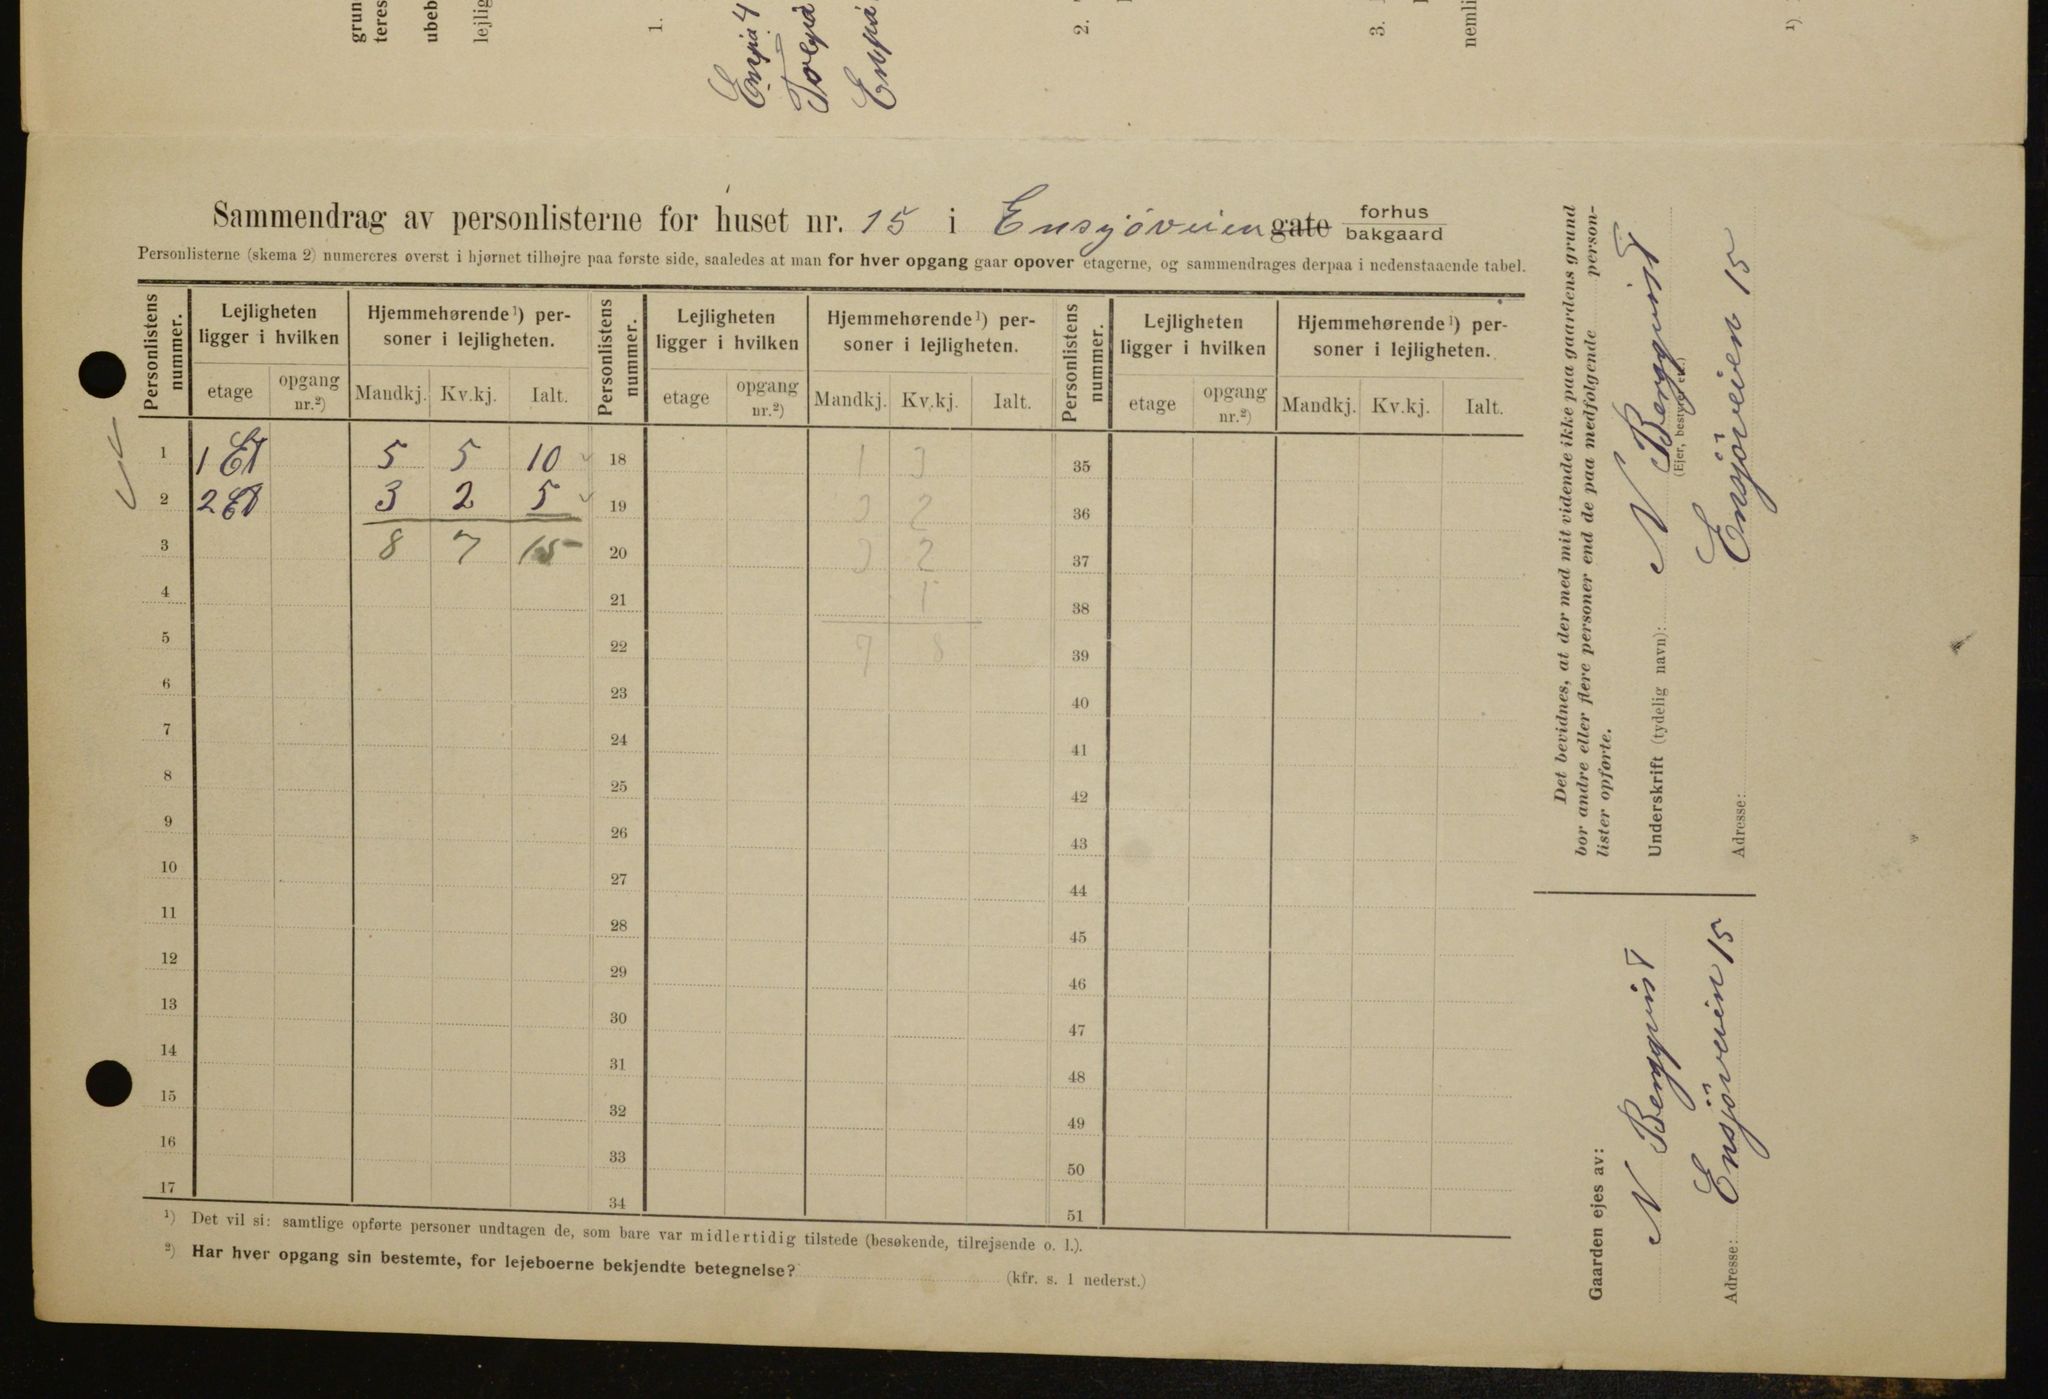 grun
teres
ubeb
lejlig
1.
2.
3.
nemli
1)
Sammendrag av personlisterne for huset nr. 15 i Ensjöveien gate forhus
bakgaard
Personlisterne (skema 2) numereres øverst i hjørnet tilhøjre paa første side, saaledes at man for hver opgang gaar opover etagerne, og sammendrages derpaa i nedenstaaende tabel.
Personlistens nummer. Lejligheten ligger i hvilken Hjemmehørende 1) personer i lejligheten. Personlistens nummer. Lejligheten ligger i hvilken Hjemmehørende 1) personer i lejligheten. Personlistens nummer. Lejligheten ligger i hvilken Hjemmehørende 1) personer i lejligheten.
etage opgang nr.2) Mandkj. Kv.kj. Ialt. etage opgang nr.2) Mandkj. Kv.kj. Ialt. etage opgang nr.2) Mandkj. Kv.kj. Ialt.
1 1 Et 5 5 10 18 1 3 35
2 2 Et 3 2 5 19 3 2 36
3 8 7 15 20 3 2 37
4 21 1 38
5 22 7 8 39
6 23 40
7 24 41
8 25 42
9 26 43
10 27 44
11 28 45
12 29 46
13 30 47
14 31 48
15 32 49
16 33 50
17 34 51
1) Det vil si: samtlige opførte personer undtagen de, som bare var midlertidig tilstede (besøkende, tilrejsende o. l.).
2) Har hver opgang sin bestemte, for lejeboerne bekjendte betegnelse? (kfr. s. 1 nederst.)
Det bevidnes, at der med mit vidende ikke paa gaardens grund
bor andre eller flere personer end de paa medfølgende person-
lister opførte.
Underskrift (tydelig navn): N Bergqvist
(Ejer, bestyrer etc.)
Adresse: Ensjöveien 15
Gaarden ejes av:
N Bergqvist
Adresse: Ensjöveien 15